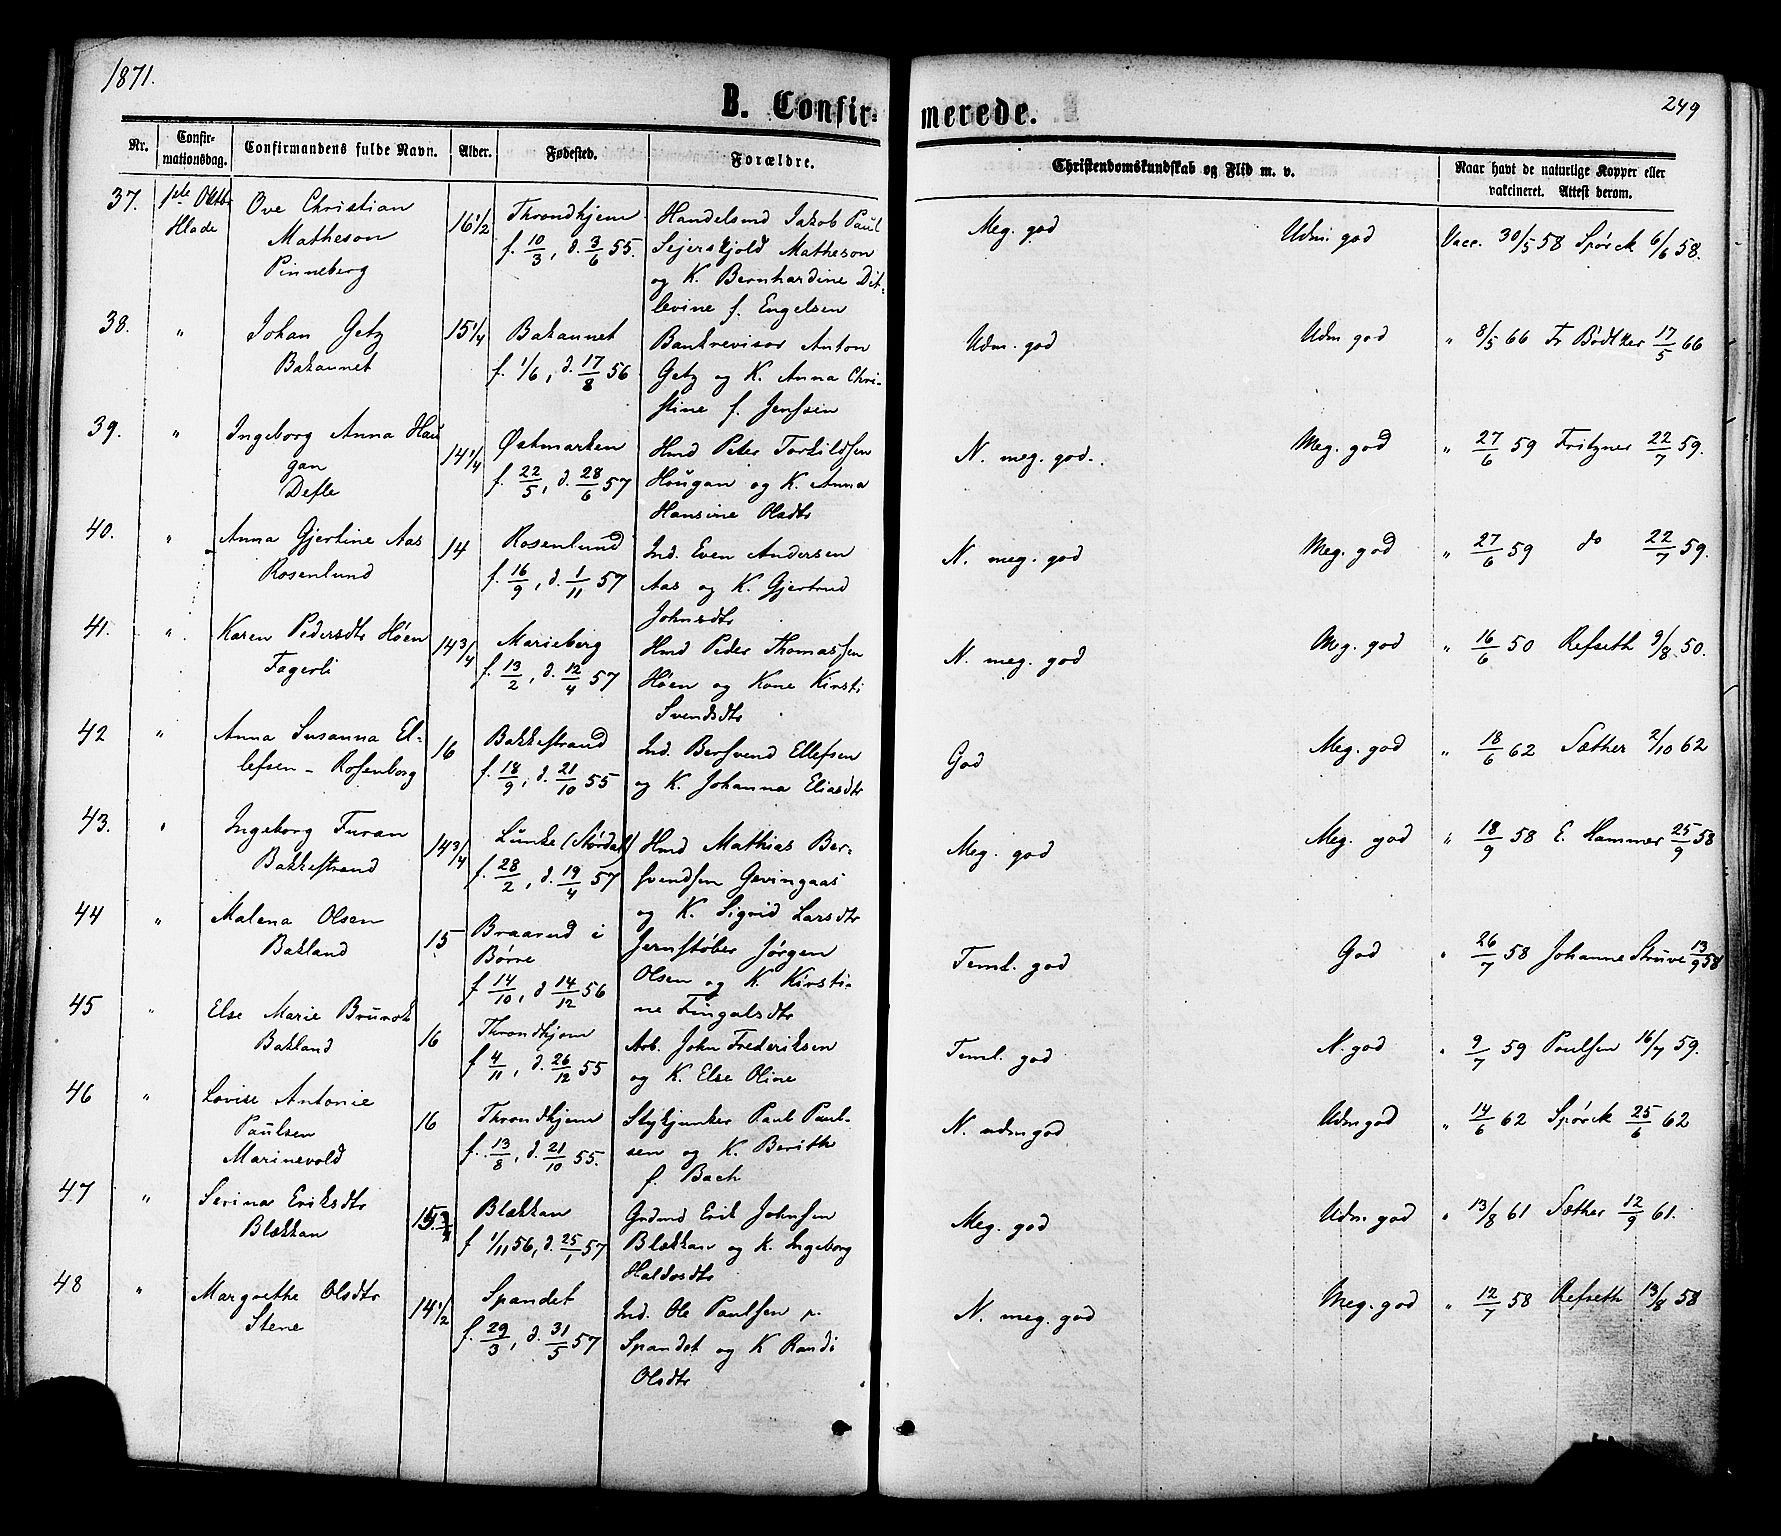 1871.
249
B. Confirmerede.
Nr.
Confirmationsdag.
Confirmandens fulde Navn.
Alder.
Fødested.
Forældre.
Christendomskundskab og Flid m. v.
Naar havt de naturlige Kopper eller
vakcineret. Attest derom.
37. 1ste Octbr Ove Christian 16 1/2 Throndhjem Handelsmd Jakob Paul Meg. god Udm. god Vacc. 30/5 58 Spörck 6/6 58.
Hlade Matheson f. 10/3, d. 3/6 55. Sejerskjold Matheson
Pinneberg og K. Bernhardine Dit-
levine f. Engelsen
38. " Johan Getz 15 1/4 Bakaunet Bankrevisor Anton Udm. god Udm god " 8/5 66 Fr Bödtker 17/5 66
Bakaunet f. 1/6, d. 17/8 56 Getz og K. Anna Chri-
stine f. Jenssen
39. " Ingeborg Anna Hau 14 1/4 Østmarken Hmd Peter Torkildsen N. meg. god. Meg. god " 27/6 59 Fritzner 22/7 59.
gan f. 22/5, d. 28/6 57 Haugan og K. Anna
Defle Hansine Olsdtr
40. " Anna Gjertine Aas 14 Rosenlund Ind. Even Andersen N. meg. god Meg. god " 27/6 59 do 22/7 59.
Rosenlund f. 16/9, d. 1/11 57 Aas og K. Gjertrud
Johnsdtr
41. " Karen Pedersdtr Höen 14 3/4 Marieberg Hmd Peder Thomassen N. meg. god Meg. god " 16/6 50 Refseth 9/8 50.
Fagerli f. 13/2, d. 12/4 57 Höen og Kone Kirsti
Svendsdtr
42 " Anna Susanna El- 16 Bakkestrand Ind. Bersvend Ellefsen God Meg. god " 18/6 62 Sæther 2/10 62
lefsen - Rosenborg f. 18/9, d. 21/10 55 og K. Johanna Eliasdtr
43. " Ingeborg Furan 14 3/4 Lunke (Stördal) Hmd Mathias Ber- Meg. god Meg. god " 18/9 58 E. Hammer 25/9 58
Bakkestrand f. 28/2, d. 19/4 57 svendsen Gevingaas
og K. Sigrid Larsdtr
44 " Malena Olsen 15 Braarud i Jernstöber Jörgen Teml. god God " 26/7 58 Johanne Struve 13/9 58
Bakland Börre Olsen og K. Kirsti-
f 14/10, d 14/12 56 ne Fingalsdtr
45 " Else Marie 16 Throndhjem Arb. John Frederiksen Teml. god N. god " 9/7 59 Poulsen 16/7 59.
Bakland f 4/11, d. 26/12 55 og K. Else Oline
46 " Lovise Antonie 16 Throndhjem Stykjunker Paul Paul- N. udm god Udm god " 14/6 62 Spörck 25/6 62
Paulsen f. 13/8, d. 21/10 55. sen og K. Berith
Marinevold f. Bach
47 " Serina Eriksdtr Blækkan Grdmd Erik Johnsen Meg. god Udm. god " 13/8 61 Sæther 12/9 61.
Blækkan f 1/11 56, d. 25/1 57 Blækkan og K. Ingeborg
Haldosdtr
48 " Margrethe Olsdtr 14 1/2 Spandet Ind. Ole Paulsen p. N. meg. god Meg. god " 12/7 58 Refseth 13/8 58
Stene f. 29/3, d. 31/5 57 Spandet og K Randi
Olsdtr